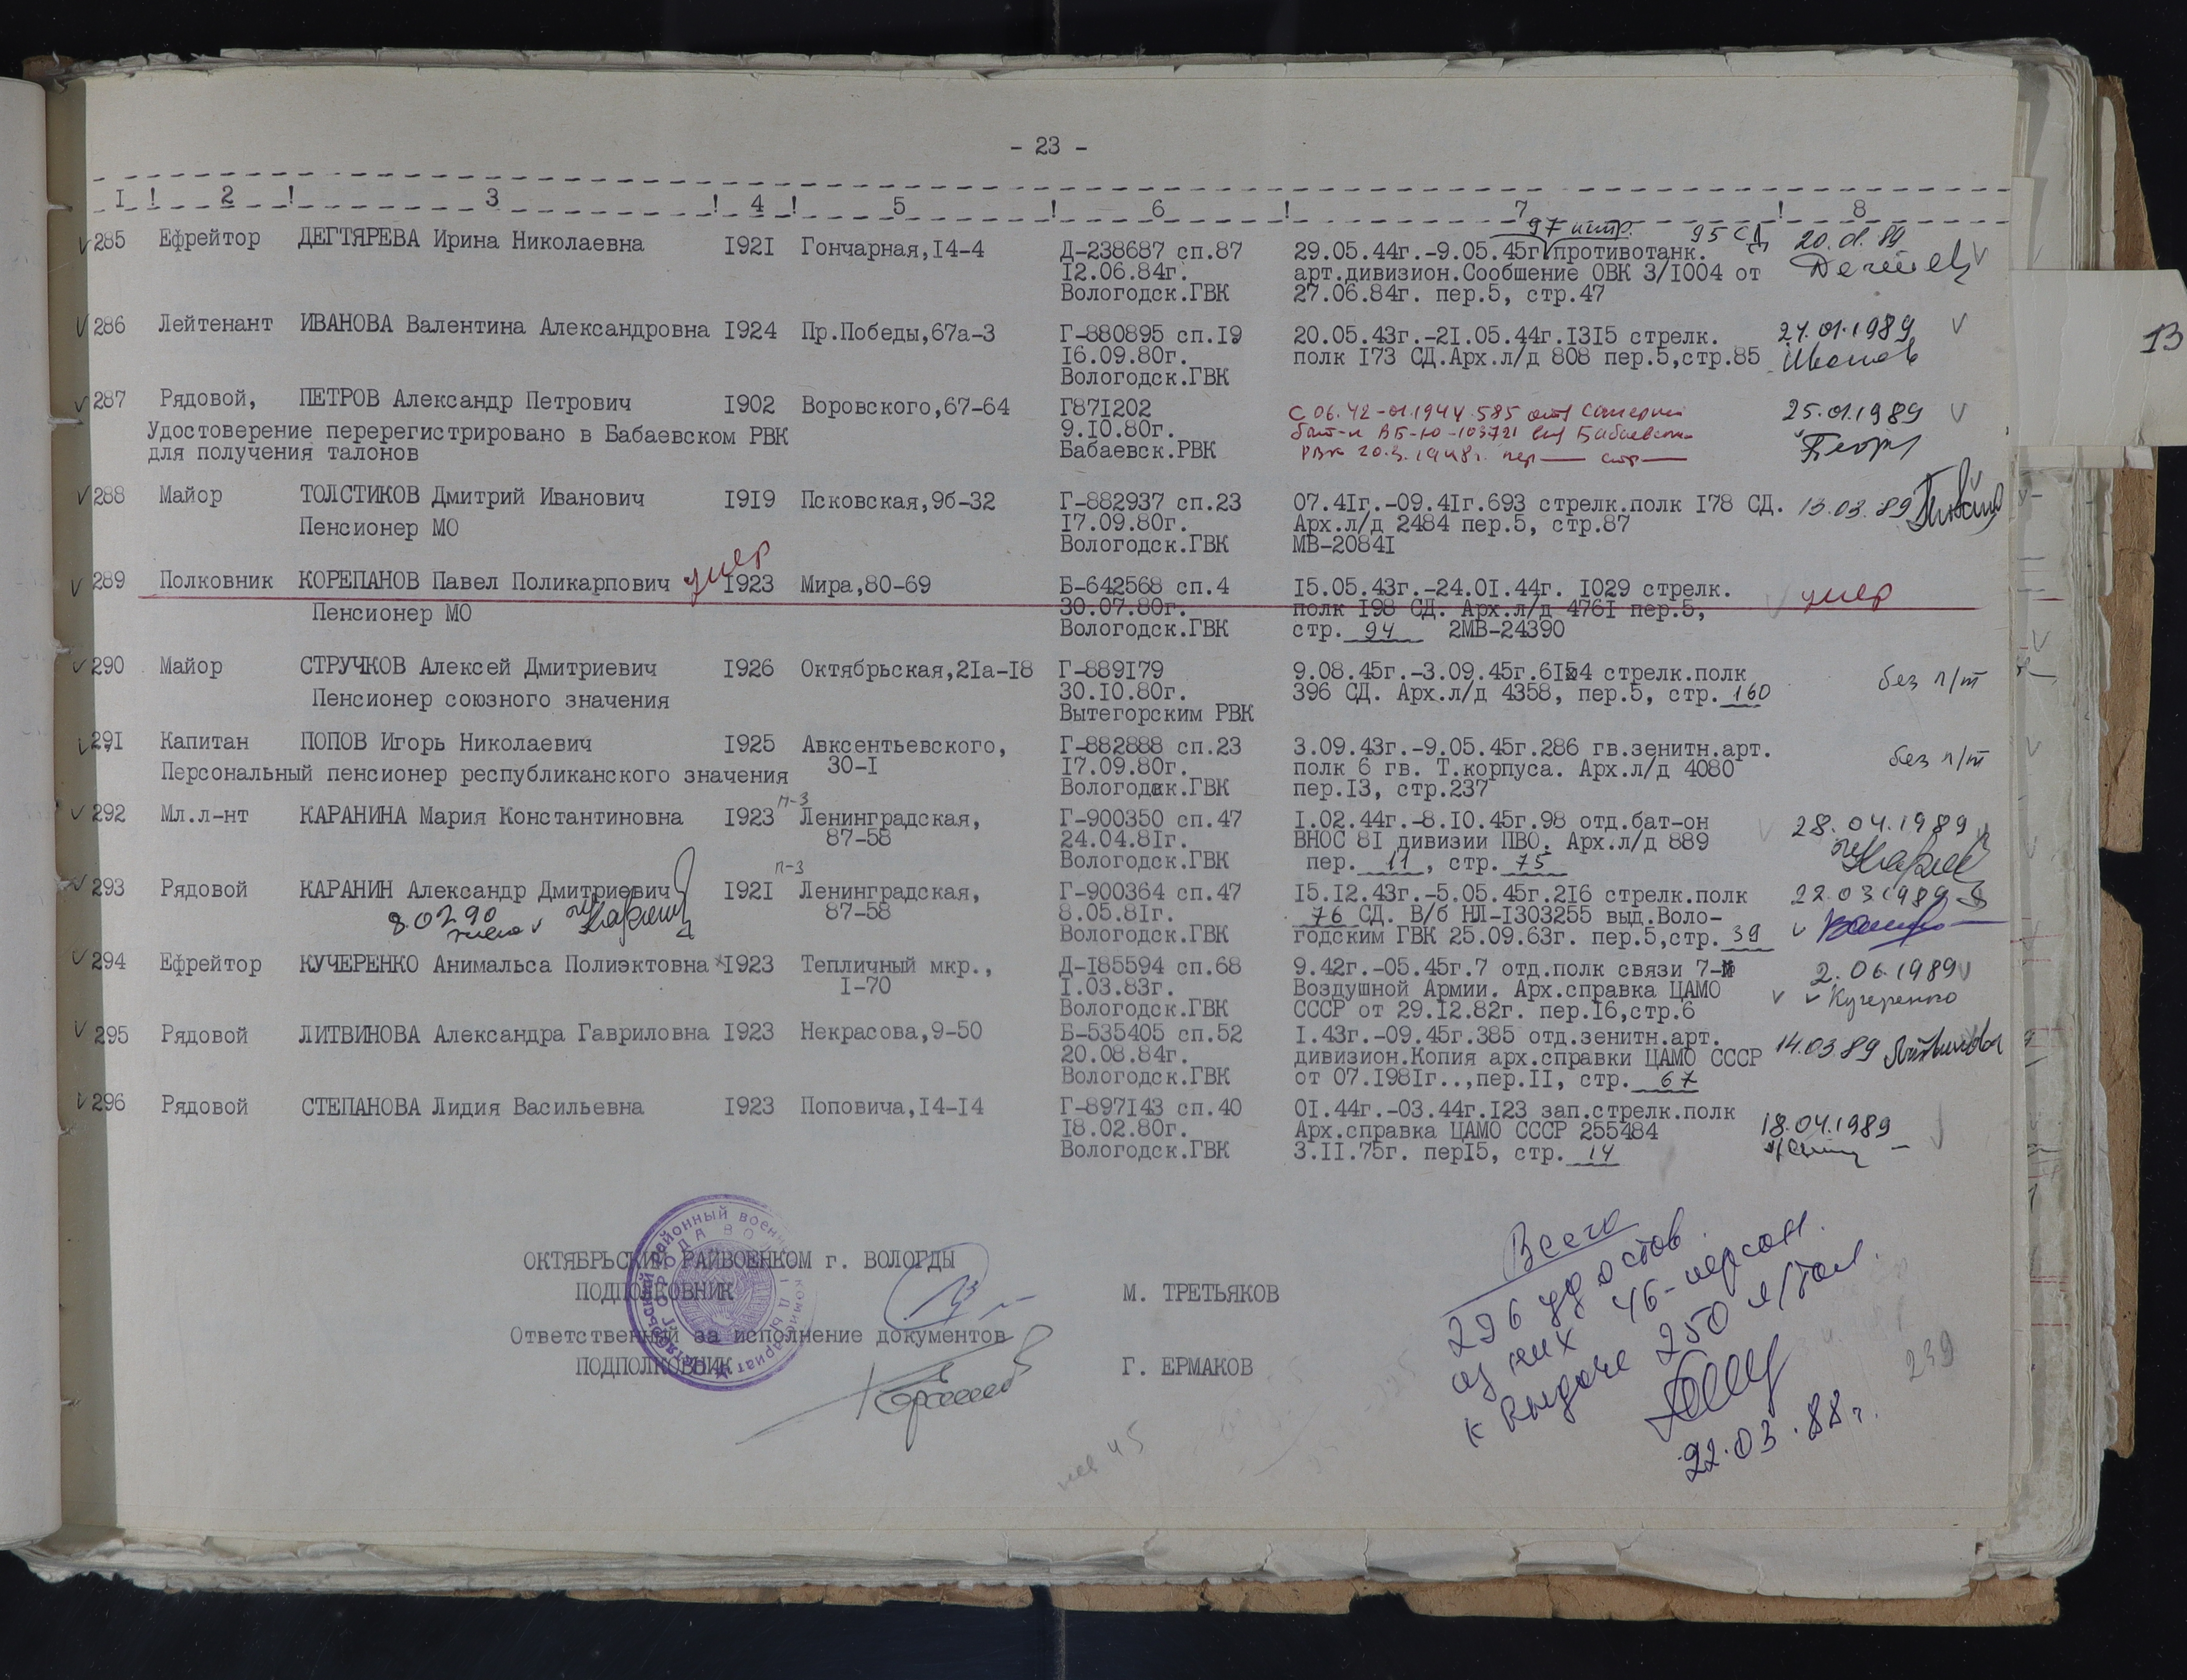 - 23 -
1 ! 2 ! 3 ! 4 ! 5 ! 6 ! 7 ! 8
97 истр. 95 СД
285 Ефрейтор ДЕГТЯРЕВА Ирина Николаевна 1921 Гончарная,14-4 Д-238687 сп.87 29.05.44г.-9.05.45г противотанк. 20.01.89
12.06.84г. арт.дивизион.Сообшение ОВК 3/1004 от
Вологодск.ГВК 27.06.84г. пер.5, стр.47
286 Лейтенант ИВАНОВА Валентина Александровна 1924 Пр.Победы,67а-3 Г-880895 сп.19 20.05.43г.-21.05.44г.1315 стрелк. 24.01.1989
16.09.80г. полк 173 СД.Арх.л/д 808 пер.5,стр.85
Вологодск.ГВК
287 Рядовой, ПЕТРОВ Александр Петрович 1902 Воровского,67-64 Г871202 с 06.42-01.1944 585 отд саперный 25.01.1989
Удостоверение перерегистрировано в Бабаевском РВК 9.10.80г. бат-н ВБ-Ю-103721 выд Бабаевским
для получения талонов Бабаевск.РВК РВК 20.3.1948г. пер— стр—
288 Майор ТОЛСТИКОВ Дмитрий Иванович 1919 Псковская,9б-32 Г-882937 сп.23 07.41г.-09.41г.693 стрелк.полк 178 СД. 13.03.89
Пенсионер МО 17.09.80г. Арх.л/д 2484 пер.5, стр.87
Вологодск.ГВК МВ-20841
289 Полковник КОРЕПАНОВ Павел Поликарпович умер 1923 Мира,80-69 Б-642568 сп.4 15.05.43г.-24.01.44г. 1029 стрелк. умер
Пенсионер МО 30.07.80г. полк 198 СД. Арх.л/д 4761 пер.5,
Вологодск.ГВК стр. 94 2МВ-24390
290 Майор СТРУЧКОВ Алексей Дмитриевич 1926 Октябрьская,21а-18 Г-889179 9.08.45г.-3.09.45г.6154 стрелк.полк без п/т
Пенсионер союзного значения 30.10.80г. 396 СД. Арх.л/д 4358, пер.5, стр. 160
Вытегорским РВК
291 Капитан ПОПОВ Игорь Николаевич 1925 Авксентьевского, Г-882888 сп.23 3.09.43г.-9.05.45г.286 гв.зенитн.арт. без п/т
Персональный пенсионер республиканского значения 30-1 17.09.80г. полк 6 гв. Т.корпуса. Арх.л/д 4080
Вологодвк.ГВК пер.13, стр.237
292 Мл.л-нт КАРАНИНА Мария Константиновна 1923 п-3 Ленинградская, Г-900350 сп.47 1.02.44г.-8.10.45г.98 отд.бат-он 28.04.1989
87-58 24.04.81г. ВНОС 81 дивизии ПВО. Арх.л/д 889
Вологодск.ГВК пер. 11, стр. 75
293 Рядовой КАРАНИН Александр Дмитриевич 1921 п-3 Ленинградская, Г-900364 сп.47 15.12.43г.-5.05.45г.216 стрелк.полк 22.03.1989
8.02.90 87-58 8.05.81г. 76 СД. В/б НЛ-1303255 выд.Воло-
Вологодск.ГВК годским ГВК 25.09.63г. пер.5,стр. 39
294 Ефрейтор КУЧЕРЕНКО Анимальса Полиэктовна 1923 Тепличный мкр., Д-185594 сп.68 9.42г.-05.45г.7 отд.полк связи 7-й 2.06.1989
1-70 1.03.83г. Воздушной Армии. Арх.справка ЦАМО Кучеренко
Вологодск.ГВК СССР от 29.12.82г. пер.16,стр.6
295 Рядовой ЛИТВИНОВА Александра Гавриловна 1923 Некрасова,9-50 Б-535405 сп.52 1.43г.-09.45г.385 отд.зенитн.арт. 14.03.89 Литвинова
20.08.84г. дивизион.Копия арх.справки ЦАМО СССР
Вологодск.ГВК от 07.1981г..,пер.11, стр. 67
296 Рядовой СТЕПАНОВА Лидия Васильевна 1923 Поповича,14-14 Г-897143 сп.40 01.44г.-03.44г.123 зап.стрелк.полк 18.04.1989
18.02.80г. Арх.справка ЦАМО СССР 255484
Вологодск.ГВК 3.11.75г. пер15, стр. 14
ОКТЯБРЬСКИЙ РАЙВОЕНКОМ г. ВОЛОГДЫ
ПОДПОЛКОВНИК М. ТРЕТЬЯКОВ
Ответственный за исполнение документов
ПОДПОЛКОВНИК Г. ЕРМАКОВ
Всего
296 удостов.
из них 46-персон.
к выдаче 250 п/тал.
22.03.88г.
239
13